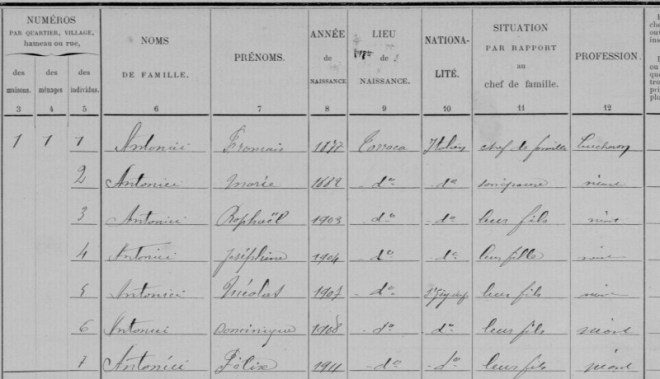 NUMÉROS
PAR QUARTIER, VILLAGE,
hameau ou rue,
des maisons. des ménages des individus.
NOMS
DE FAMILLE.
PRÉNOMS.
ANNÉE
de
NAISSANCE
LIEU
de
NAISSANCE.
NATIONA-
LITÉ.
SITUATION
PAR RAPPORT
au
chef de famille.
PROFESSION.
3 4 5 6 7 8 9 10 11 12
1 1 1 Antonici Français Torraca Italien chef de famille
2 Antonici Marie 1882 do do
3 Antonici Raphaël 1903 do do leur fils
4 Antonici Joséphine 1904 do do leur fille
5 Antonici Nicolas 1907 do leur fils
6 Antonici Dominique 1908 do do leur fils
7 Antonici Félix 1911 do do leur fils